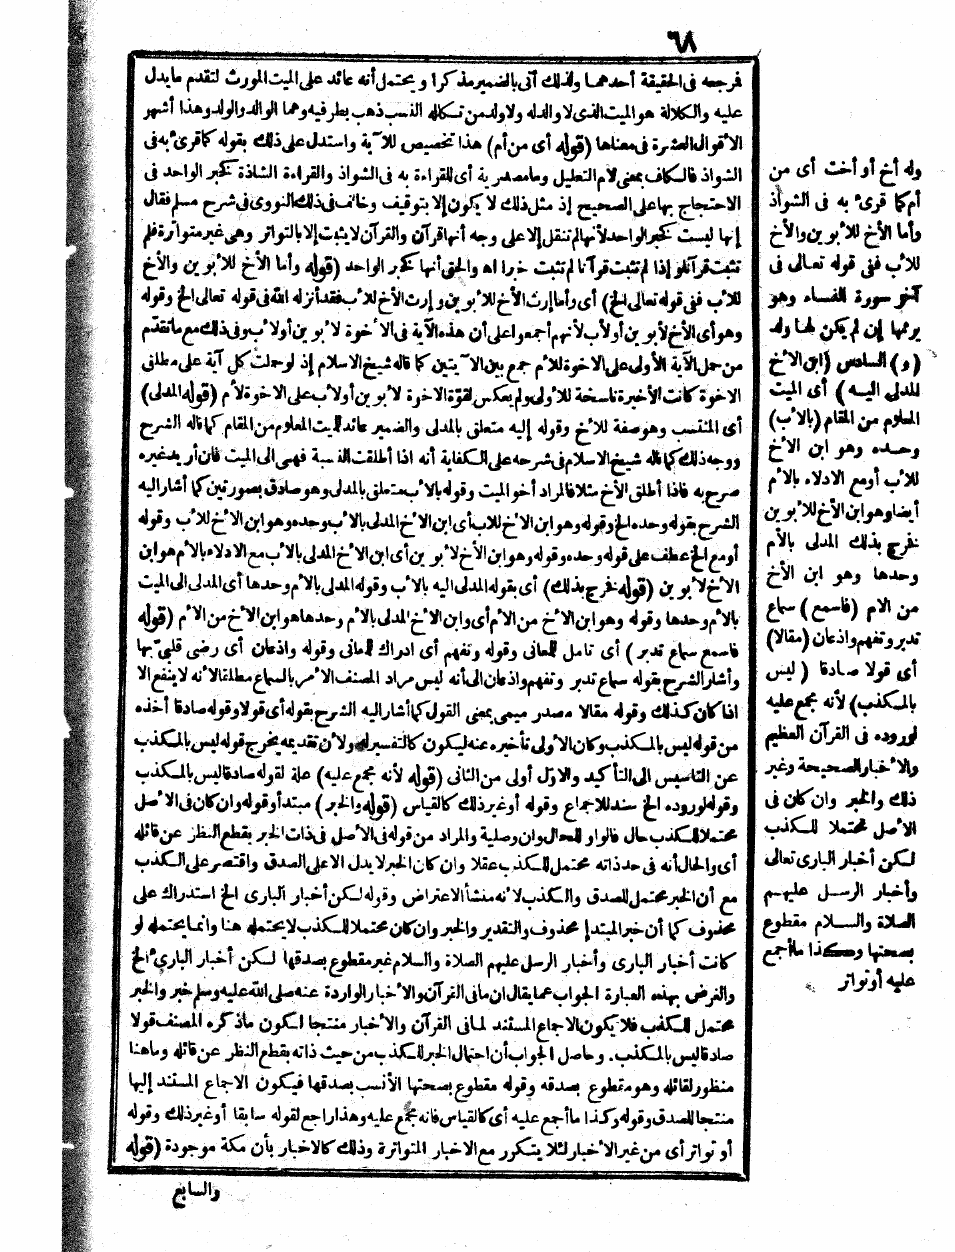 ٦٨
فرجعه فى الحقيقة أحدهما ولذلك أتى بالضمير مذكرا ويحتمل أنه عائد على الميت المورث لتقدم ما يدل
عليه والكلالة هو الميت الذى لا والد له ولا ولد من تكاله النسب ذهب بطرفيه وهما الوالد والولد وهذا أشهر
الأقوال العشرة فى معناها (قوله أى من أم) هذا تخصيص للآية واستدل على ذلك بقوله كما قرئ به فى
الشواذ فالكاف بمعنى لام التعليل وما مصدرية أى للقراءة به فى الشواذ والقراءة الشاذة كخبر الواحد فى
الاحتجاج بها على الصحيح إذ مثل ذلك لا يكون إلا بتوقيف وخالف فى ذلك النووى فى شرح مسلم فقال
إنها ليست كخبر الواحد لأنها لم تنقل إلا على وجه أنها قرآن والقرآن لا يثبت إلا بالتواتر وهى غير متواترة فلم
تثبت قرآنا وإذا لم تثبت قرآنا لم تثبت خبرا اه والحق أنها كخبر الواحد (قوله وأما الأخ للأبوين والأخ
للأب ففى قوله تعالى الخ) أى وأما إرث الأخ للأبوين وإرث الأخ للأب فقد أنزله الله فى قوله تعالى الخ وقوله
وهو أى الأخ لأبوين أو لأب لأنهم أجمعوا على أن هذه الآية فى الأخوة لأبوين أو لأب وفى ذلك مع ما تقدم
من حمل الآية الأولى على الاخوة للأم جمع بين الآيتين كما قاله شيخ الاسلام إذ لو حملت كل آية على مطلق
الاخوة كانت الأخيرة ناسخة للأولى ولم يعكس لقوة الاخوة لأبوين أو لأب على الاخوة لأم (قوله المدلى)
أى المنتسب وهو صفة للأخ وقوله إليه متعلق بالمدلى والضمير عائد للميت المعلوم من المقام كما قاله الشرح
ووجه ذلك كما قاله شيخ الاسلام فى شرحه على الكفاية أنه اذا أطلقت النسبة فهى الى الميت فان أريد غيره
صرح به فاذا أطلق الأخ مثلا فالمراد أخو الميت وقوله بالأب متعلق بالمدلى وهو صادق بصورتين كما أشار اليه
الشرح بقوله وحده الخ وقوله وهو ابن الأخ للاب أى ابن الأخ المدلى بالأب وحده وهو ابن الأخ للأب وقوله
أو مع الخ عطف على قوله وحده وقوله وهو ابن الأخ لأبوين أى ابن الأخ المدلى بالأب مع الادلاء بالأم هو ابن
الأخ لأبوين (قوله فخرج بذلك) أى بقوله المدلى اليه بالأب وقوله المدلى بالأم وحدها أى المدلى الى الميت
بالأم وحدها وقوله وهو ابن الأخ من الأم أى وابن الأخ المدلى بالأم وحدها هو ابن الأخ من الأم (قوله
فاسمع سماع تدبر) أى تأمل للمعانى وقوله وتفهم أى ادراك للمعانى وقوله واذعان أى رضى قلبى بها
وأشار الشرح بقوله سماع تدبر وتفهم واذعان الى أنه ليس مراد المصنف الأمر بالسماع مطلقا لأنه لا ينفع الا
اذا كان كذلك وقوله مقالا مصدر ميمى بمعنى القول كما أشار اليه الشرح بقوله أى قولا وقوله صادقا أخذه
من قوله ليس بالمكذب وكان الأولى تأخيره عنه ليكون كالتفسير له ولأن تقديمه يخرج قوله ليس بالمكذب
عن التأسيس الى التأكيد والاوّل أولى من الثانى (قوله لأنه مجمع عليه) علة لقوله صادقا ليس بالمكذب
وقوله لوروده الخ سند للاجماع وقوله أو غير ذلك كالقياس (قوله والخبر) مبتدأ وقوله وان كان فى الأصل
محتملا للكذب حال فالواو للحال وان وصلية والمراد من قوله فى الأصل فى ذات الخبر بقطع النظر عن قائله
أى والحال أنه فى حد ذاته محتمل للكذب عقلا وان كان الخبر لا يدل الا على الصدق واقتصر على الكذب
مع أن الخبر محتمل للصدق والكذب لأنه منشأ الاعتراض وقوله لكن أخبار البارى الخ استدراك على
محذوف كما أن خبر المبتدإ محذوف والتقدير والخبر وان كان محتملا للكذب لا يحتمله هنا وانما يحتمله لو
كانت أخبار البارى وأخبار الرسل عليهم الصلاة والسلام غير مقطوع بصدقها لكن أخبار البارئ الخ
والغرض بهذه العبارة الجواب عما يقال ان ما فى القرآن والأخبار الواردة عنه صلى الله عليه وسلم خبر والخبر
محتمل للكذب فلا يكون الاجماع المستند لما فى القرآن والأخبار منتجا لكون ما ذكره المصنف قولا
صادقا ليس بالمكذب. وحاصل الجواب أن احتمال الخبر للكذب من حيث ذاته بقطع النظر عن قائله وما هنا
منظور لقائله وهو مقطوع بصدقه وقوله مقطوع بصحتها الأنسب بصدقها فيكون الاجماع المستند إليها
منتجا للصدق وقوله وكذا ما أجمع عليه أى كالقياس فانه مجمع عليه وهذا راجع لقوله سابقا أو غير ذلك وقوله
أو تواتر أى من غير الأخبار لئلا يتكرر مع الاخبار المتواترة وذلك كالاخبار بأن مكة موجودة (قوله
والسابع
وله أخ أو أخت أى من
أم كما قرئ به فى الشواذ
وأما الأخ للأبوين والأخ
للأب ففى قوله تعالى فى
آخر سورة النساء وهو
يرثها إن لم يكن لها ولد
(و) السادس (ابن الأخ
المدلى اليه) أى الميت
المعلوم من المقام (بالأب)
وحده وهو ابن الأخ
للأب أو مع الادلاء بالأم
أيضا وهو ابن الأخ للأبوين
فخرج بذلك المدلى بالأم
وحدها وهو ابن الأخ
من الام (فاسمع) سماع
تدبر وتفهم واذعان (مقالا)
أى قولا صادقا (ليس
بالمكذب) لأنه مجمع عليه
لوروده فى القرآن العظيم
والأخبار الصحيحة وغير
ذلك والخبر وان كان فى
الأصل محتملا للكذب
لكن أخبار البارى تعالى
وأخبار الرسل عليهم
الصلاة والسلام مقطوع
بصحتها وهكذا ما أجمع
عليه أو تواتر